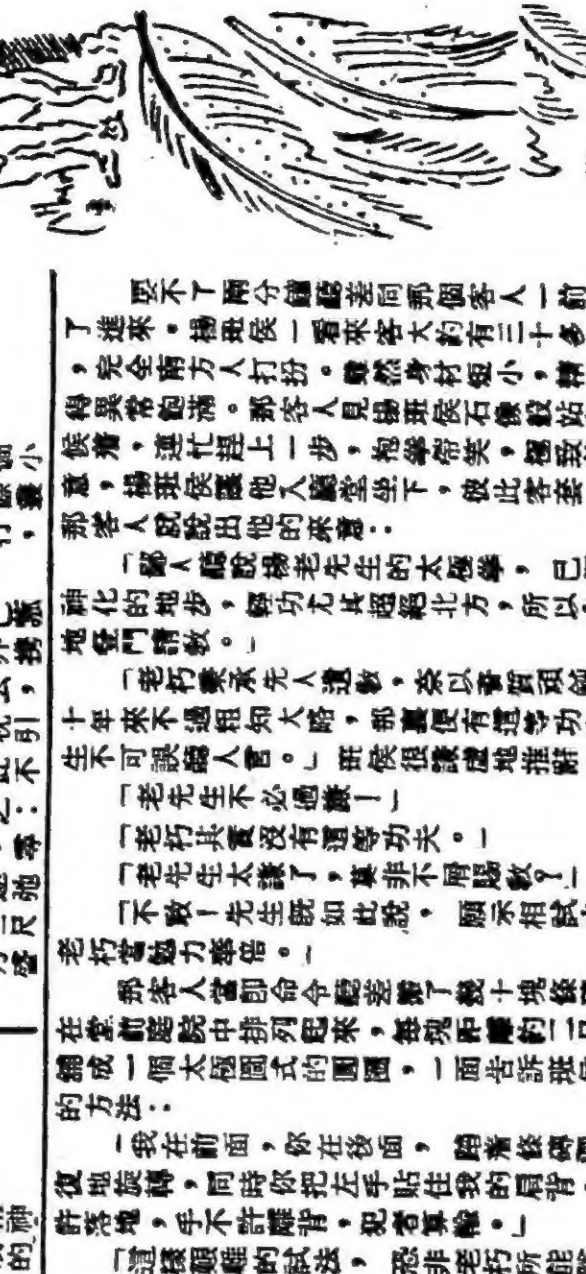 要不了兩分鐘聽差同那個客人一前
了進來。楊班侯一看來客大約有三十多
，完全南方人打扮。雖然身材短小，精
得異常飽滿。那客人見楊班侯石像般站
候着，連忙趕上一步，抱拳帶笑，極致
意，楊班侯讓他入廳堂坐下，彼此客套
那客人就說出他的來意：
「鄙人聽說楊老先生的太極拳，已
神化的地步，輕功尤其超絕北方，所以
地登門請教。」
「老朽秉承先人遺教，奈以資質頑
十年來不過粗知大略，那裏便有這等功
生不可誤聽人言。」班侯很謙虛地推辭
「老先生不必過謙！」
「老朽其實沒有這等功夫。」
「老先生太謙了，莫非不屑賜教？」
「不敢！先生既如此說，願承相試
老朽當竭力奉陪。」
那客人當即命令聽差搬了幾十塊條
在堂前庭院中排列起來，每塊距離約二
舖成一個太極圖式的圓圈，一面告訴班
的方法：
「我在前面，你在後面，踏着條磚
復地旋轉，同時你把左手貼住我的肩背，
許落地，手不許離背，犯者算輸。」
「這樣艱難的試法，恐非老朽所能